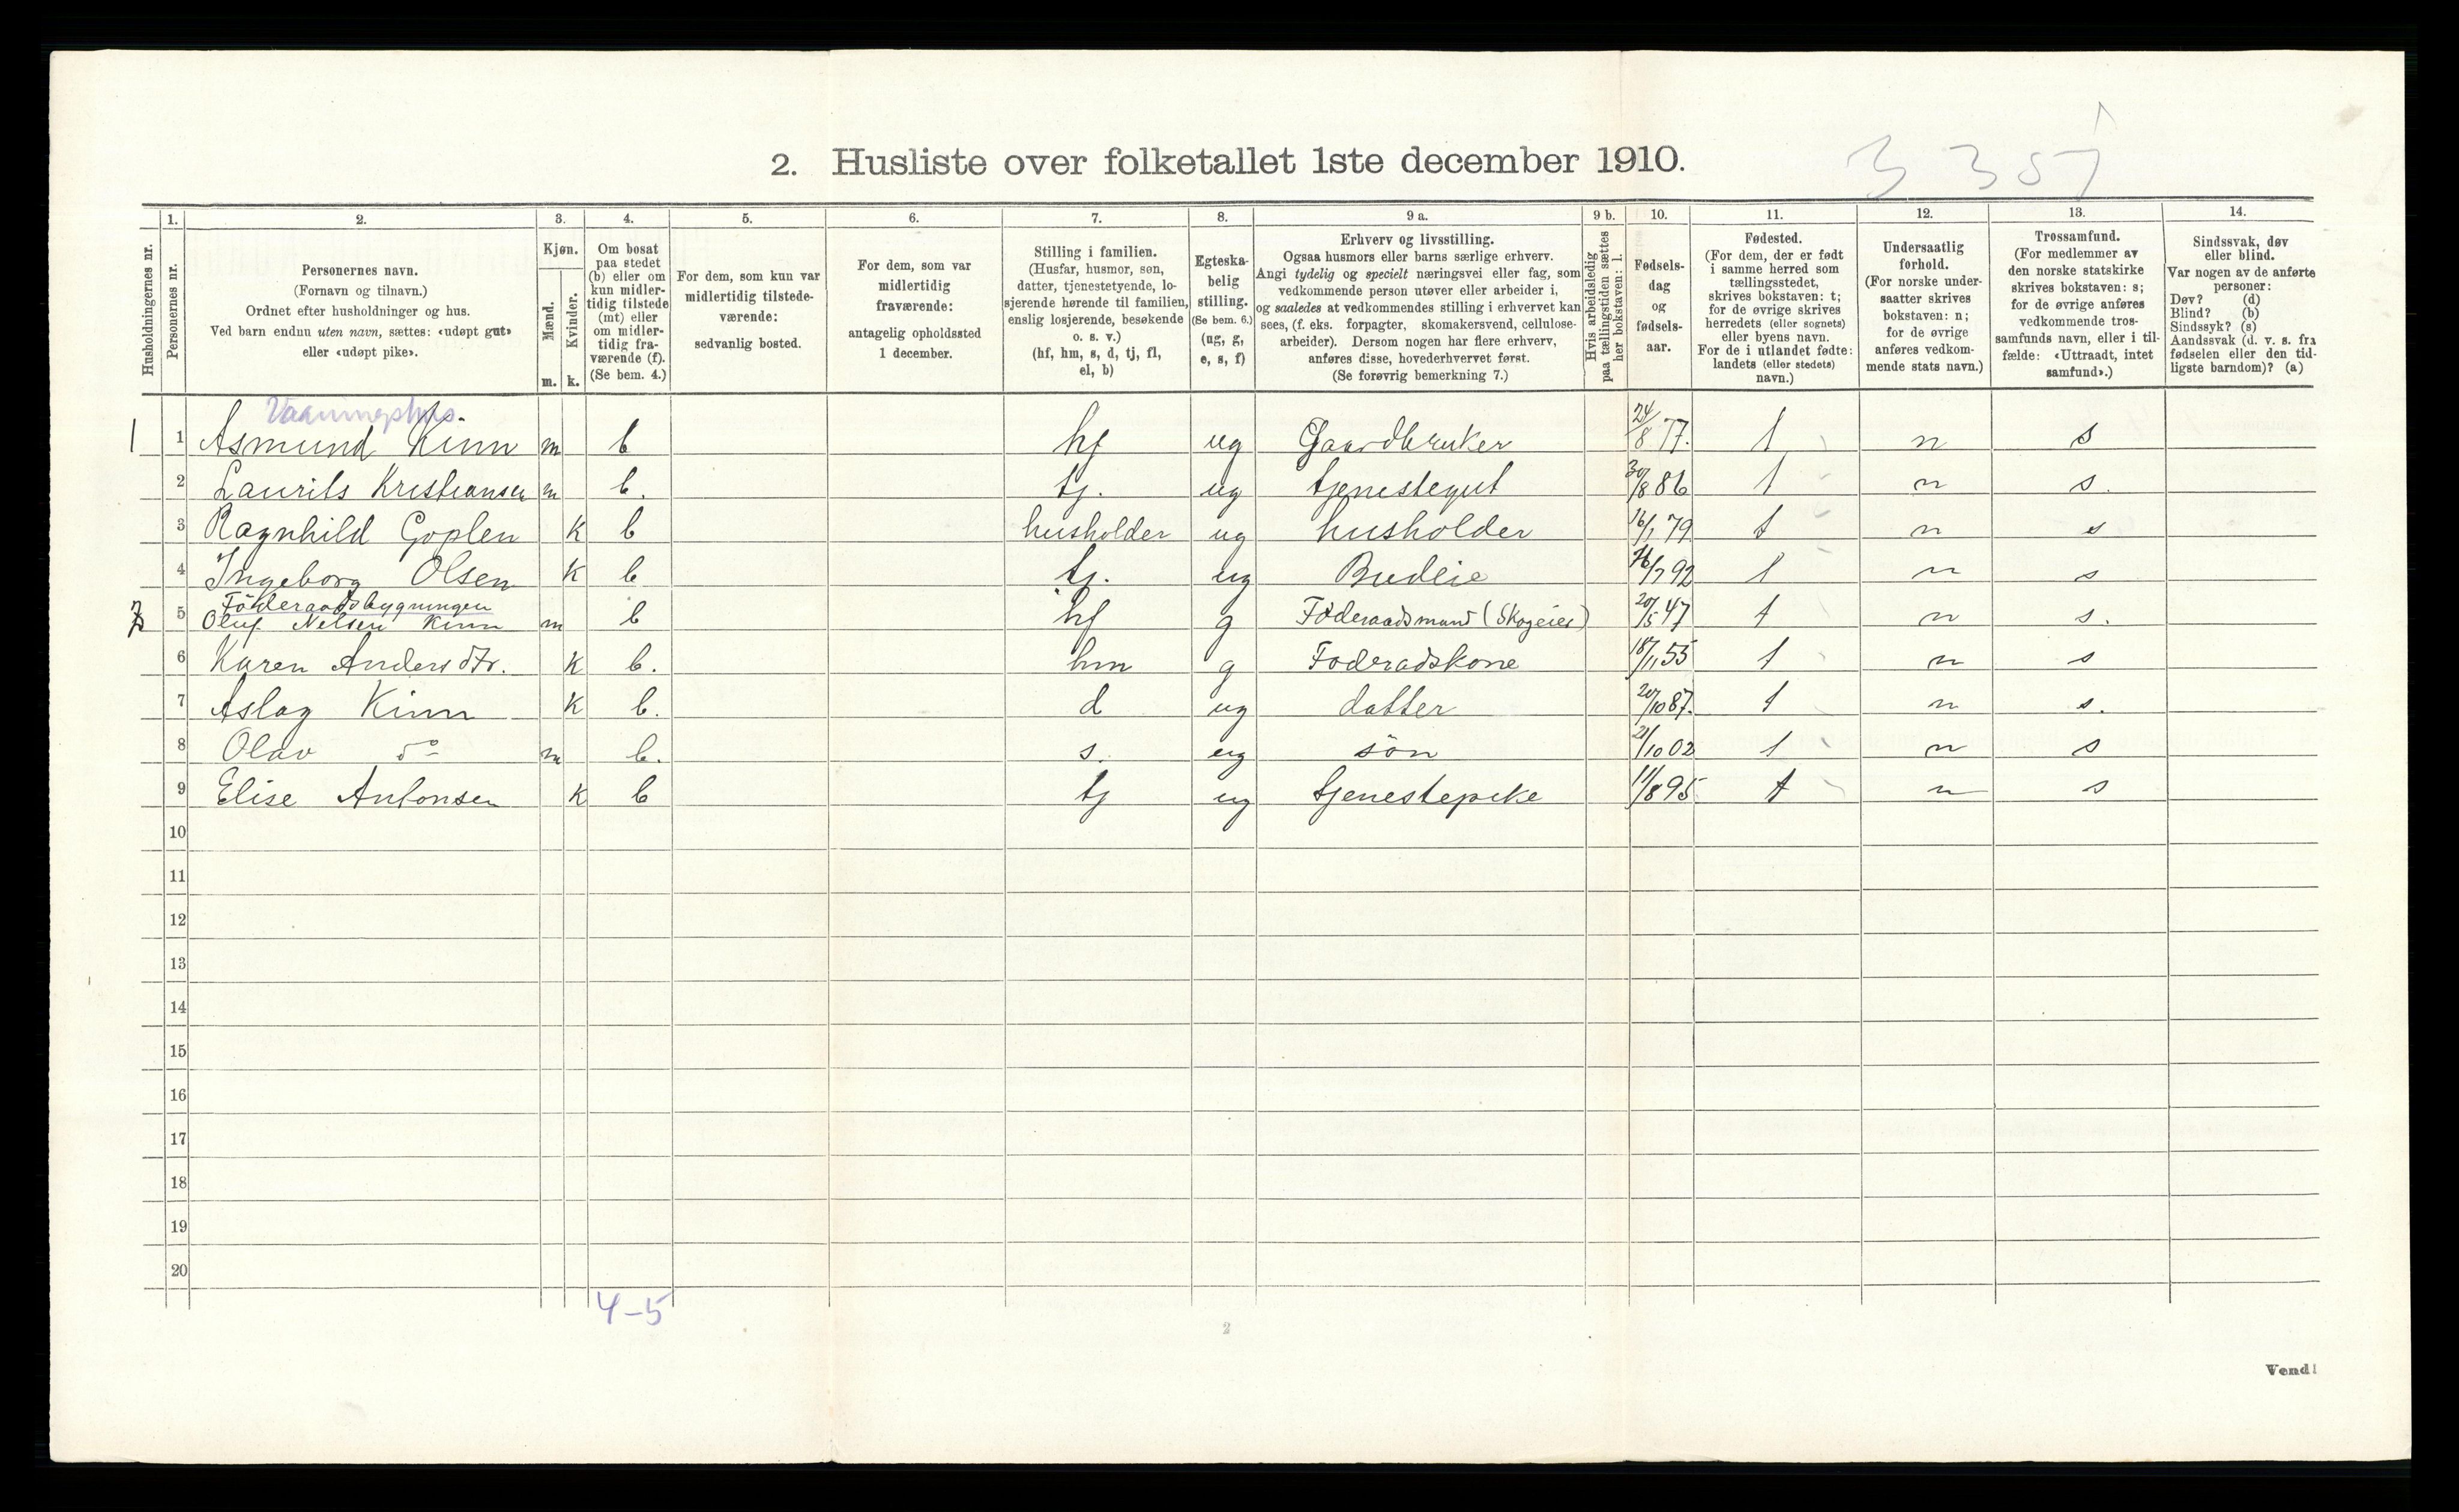 3 357
2. Husliste over folketallet 1ste december 1910.
Husholdningernes nr.
1.
Personernes nr.
2.
Personernes navn.
(Fornavn og tilnavn.)
Ordnet efter husholdninger og hus.
Ved barn endnu uten navn, sættes: «udøpt gut»
eller «udøpt pike».
3.
Kjøn.
Mænd.
m.
Kvinder.
k.
4.
Om bosat
paa stedet
(b) eller om
kun midler-
tidig tilstede
(mt) eller
om midler-
tidig fra-
værende (f).
(Se bem. 4.)
5.
For dem, som kun var
midlertidig tilstede-
værende:
sedvanlig bosted.
6.
For dem, som var
midlertidig
fraværende:
antagelig opholdssted
1 december.
7.
Stilling i familien.
(Husfar, husmor, søn,
datter, tjenestetyende, lo-
sjerende hørende til familien,
enslig losjerende, besøkende
o. s. v.)
(hf, hm, s, d, tj, fl,
el, b)
8.
Egteska-
belig
stilling.
(Se bem. 6.)
(ug, g,
e, s, f)
9 a.
Erhverv og livsstilling.
Ogsaa husmors eller barns særlige erhverv.
Angi tydelig og specielt næringsvei eller fag, som
vedkommende person utøver eller arbeider i,
og saaledes at vedkommendes stilling i erhvervet kan
sees, (f. eks. forpagter, skomakersvend, cellulose-
arbeider). Dersom nogen har flere erhverv,
anføres disse, hovederhvervet først.
(Se forøvrig bemerkning 7.)
9 b.
Hvis arbeidsledig
paa tællingstiden sættes
her bokstaven: l.
10.
Fødsels-
dag
og
fødsels-
aar.
11.
Fødested.
(For dem, der er født
i samme herred som
tællingsstedet,
skrives bokstaven: t;
for de øvrige skrives
herredets (eller sognets)
eller byens navn.
For de i utlandet fødte:
landets (eller stedets)
navn.)
12.
Undersaatlig
forhold.
(For norske under-
saatter skrives
bokstaven: n;
for de øvrige
anføres vedkom-
mende stats navn.)
13.
Trossamfund.
(For medlemmer av
den norske statskirke
skrives bokstaven: s;
for de øvrige anføres
vedkommende tros-
samfunds navn, eller i til-
fælde: «Uttraadt, intet
samfund».)
14.
Sindssvak, døv
eller blind.
Var nogen av de anførte
personer:
Døv? (d)
Blind? (b)
Sindssyk? (s)
Aandssvak (d. v. s. fra
fødselen eller den tid-
ligste barndom)? (a)
Vaaningshus.
1 1 Asmund Kinn m b hf ug Gaardbruker 24/8 77. t n s
2 Laurits Kristiansen m b. tj. ug tjenestegut 30/8 86 t n s.
3 Ragnhild Goplen k b husholder ug husholder 16/1 79 t n s
4 Ingeborg Olsen k b tj. ug Budeie 16/7 92 t n s
Föderaadsbygningen
2 5 Oluf Nelsen Kinn m b hf g Föderaadsmand (Skogeier) 20/5 47 t n s.
6 Karen Andersdtr. k b. hm g Foderadskone 18/11 55 t n s
7 Aslag Kinn k b. d ug datter 20/10 87. t n s.
8 Olav do m b. s. ug sön 21/10 02 t n s
9 Elise Antonsen k b tj ug tjenestepike 11/8 95 t n s
10
11
12
13
14
15
16
17
18
19
20
4-5
2
Vend!